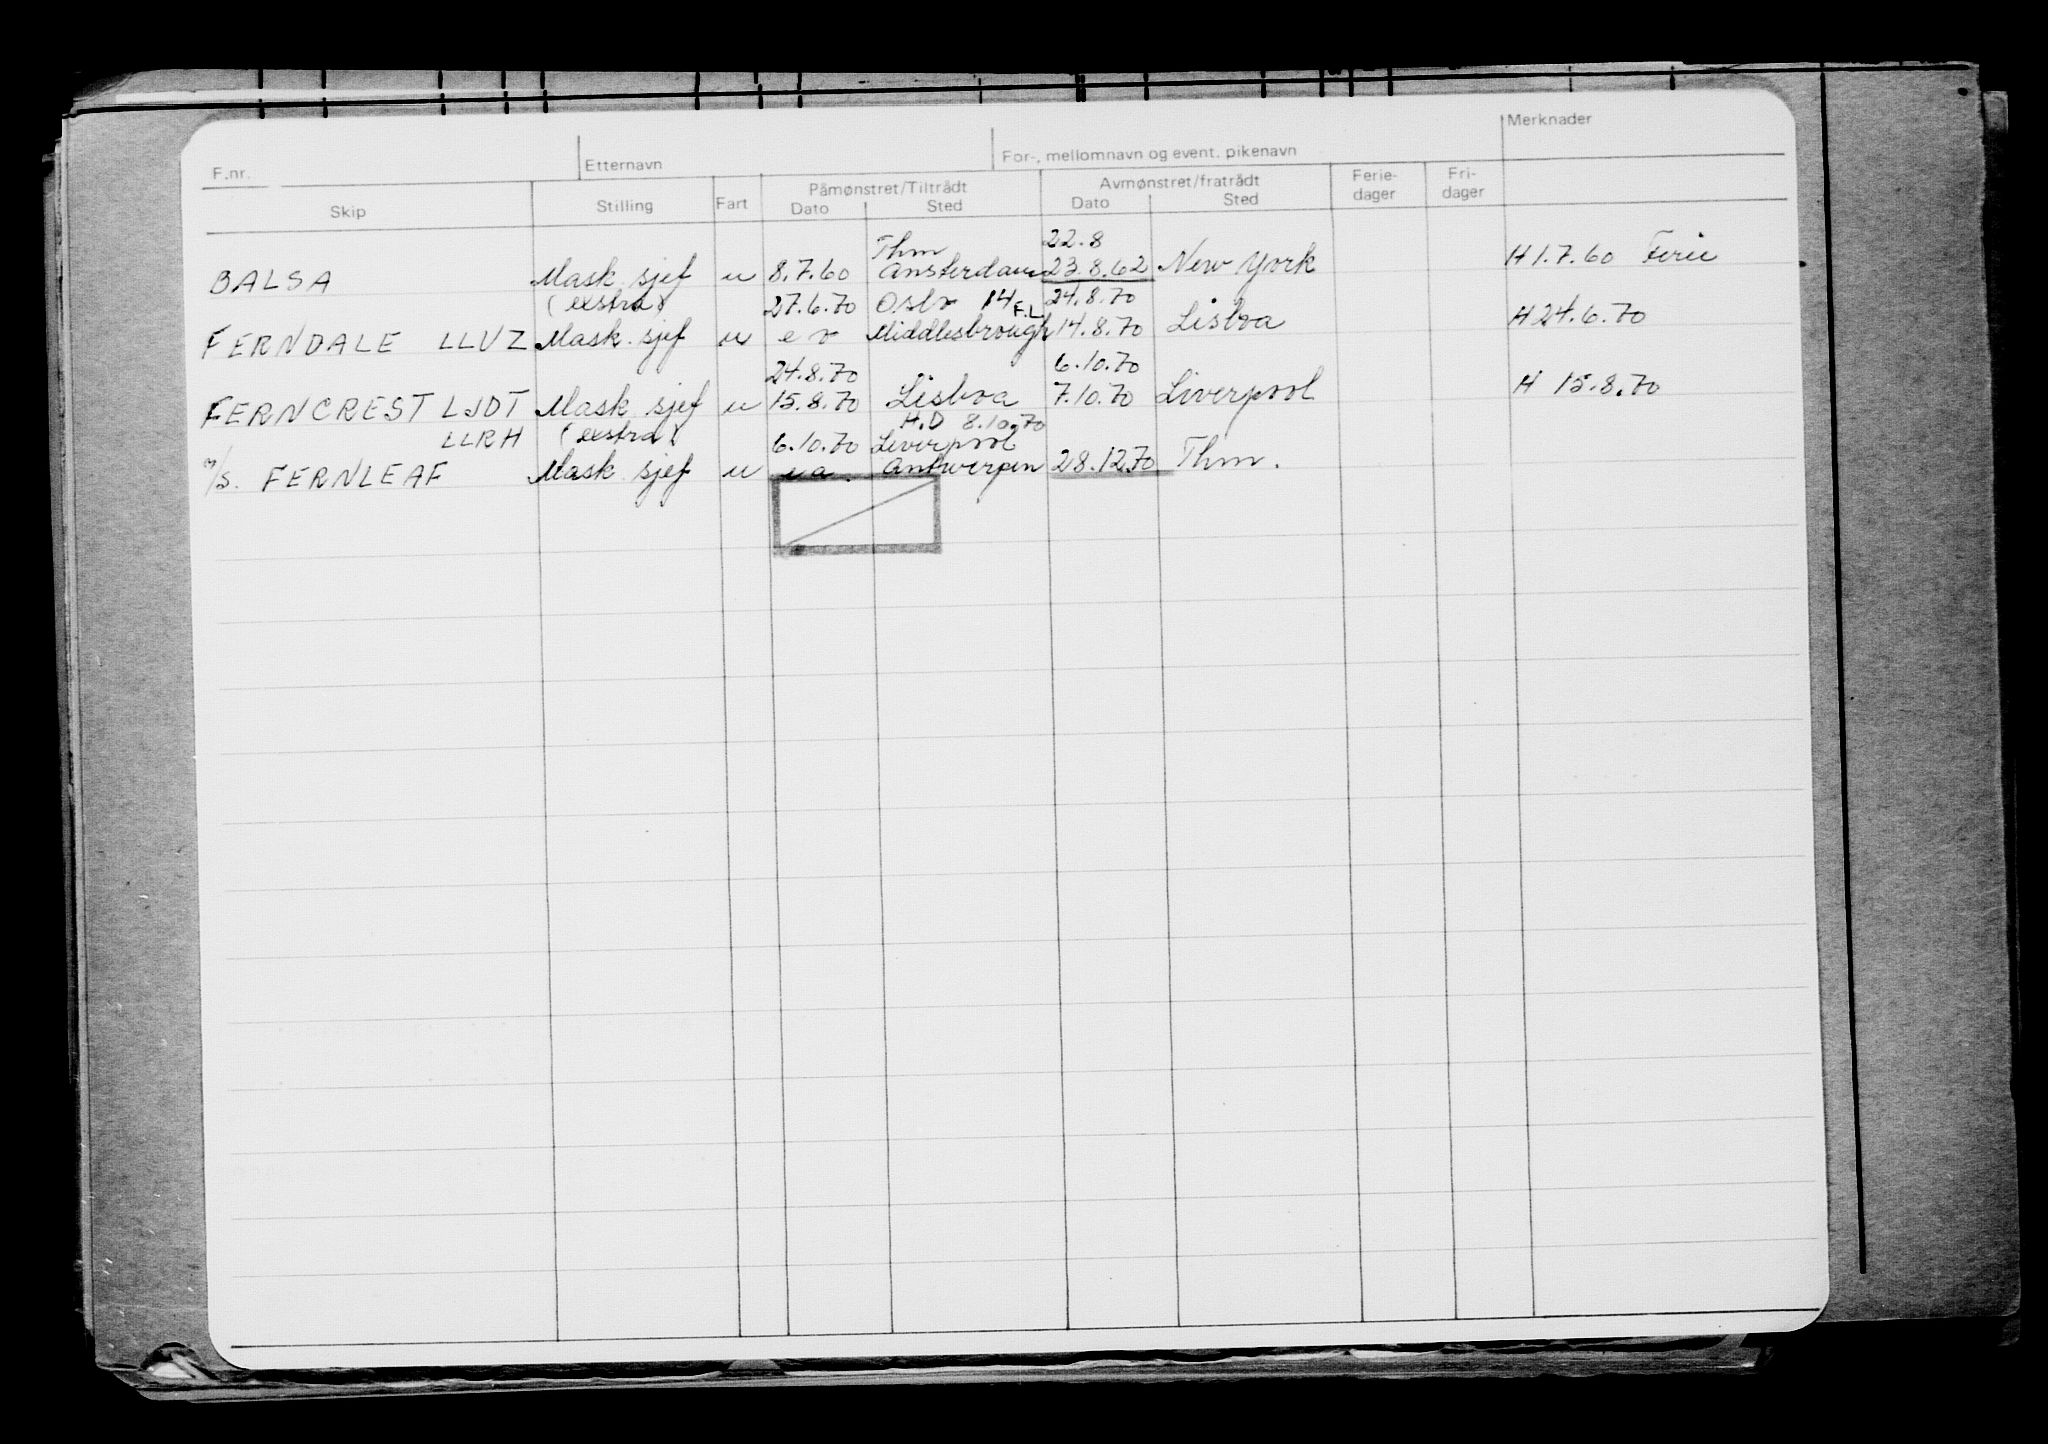 F.nr. Etternavn For-, mellomnavn og event. pikenavn Merknader
Skip Stilling Fart Påmønstret/Tiltrådt Avmønstret/fratrådt Ferie- dager Fri- dager
Dato Sted Dato Sted
Thm 22.8
BALSA Mask sjef u 8.7.60 Amsterdam 23.8.62 New York H 1.7.60 Ferie
(exstra) 27.6.70 Oslo 14 F.L 24.8.70
FERNDALE LLVZ Mask. sjef u Middlesbrough 14.8.70 Lisboa H 24.6.70
24.8.70 6.10.70
FERNCREST LJDT Mask sjef u 15.8.70 Lisboa 7.10.70 Liverpool H 15.8.70
H.D 8.10.70
LLRH (exstra) 6.10.70 Liverpool
M/S. FERNLEAF Mask sjef u ua. Antwerpen 28.12.70 Thm.